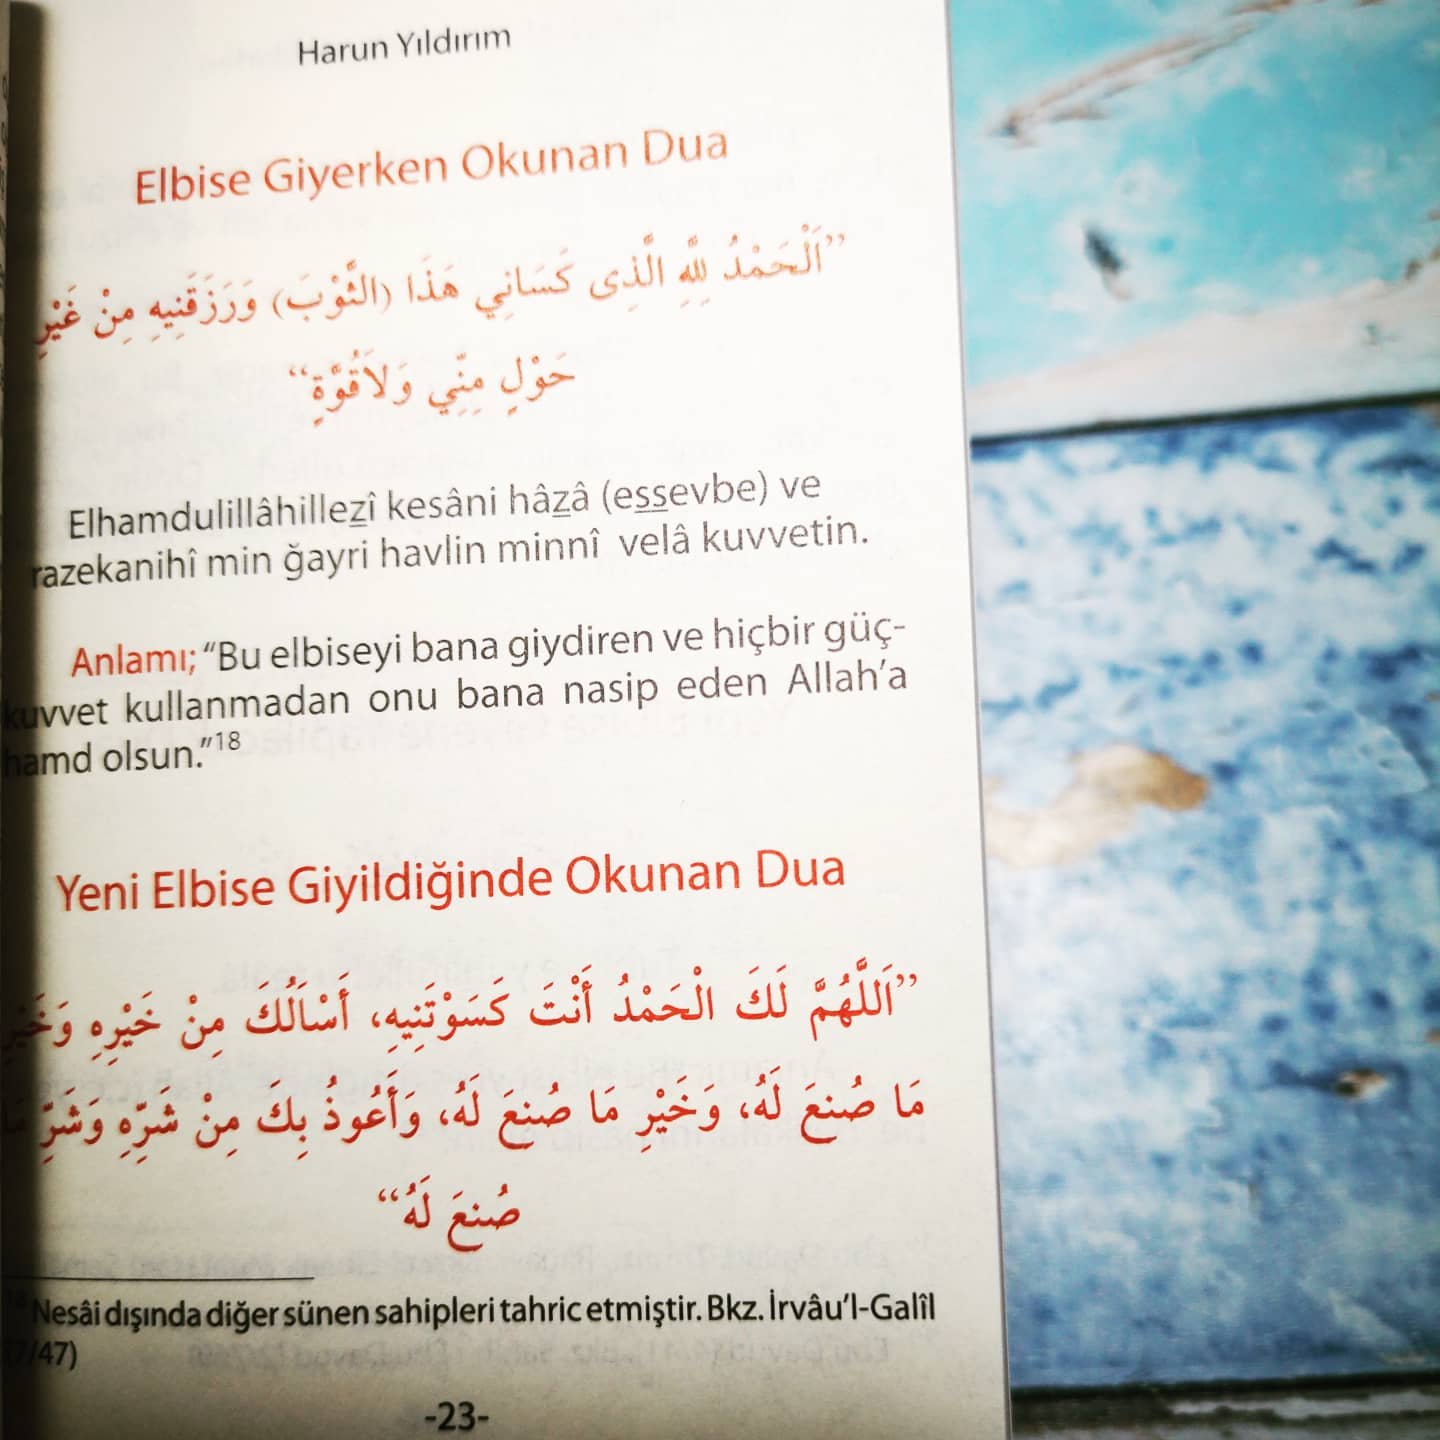 Harun Yıldırım
Elbise Giyerken Okunan Dua
”اَلْحَمْدُ لِلَّهِ الَّذِى كَسَانِي هَذَا (الثَّوْبَ) وَرَزَقَنِيهِ مِنْ غَيْرِ
حَوْلٍ مِنِّي وَلاَقُوَّةٍ“
Elhamdulillâhillezî kesâni hâzâ (essevbe) ve
razekanihî min ğayri havlin minnî velâ kuvvetin.
Anlamı; “Bu elbiseyi bana giydiren ve hiçbir güç-
kuvvet kullanmadan onu bana nasip eden Allah’a
hamd olsun.”18
Yeni Elbise Giyildiğinde Okunan Dua
”اَللَّهُمَّ لَكَ الْحَمْدُ أَنْتَ كَسَوْتَنِيهِ، أَسْاَلُكَ مِنْ خَيْرِهِ وَخَيْرِ
مَا صُنعَ لَهُ، وَخَيْرِ مَا صُنِعَ لَهُ، وَأَعُوذُ بِكَ مِنْ شَرِّهِ وَشَرِّ مَا
صُنعَ لَهُ“
Nesâi dışında diğer sünen sahipleri tahric etmiştir. Bkz. İrvâu’l-Galîl
7/47)
-23-